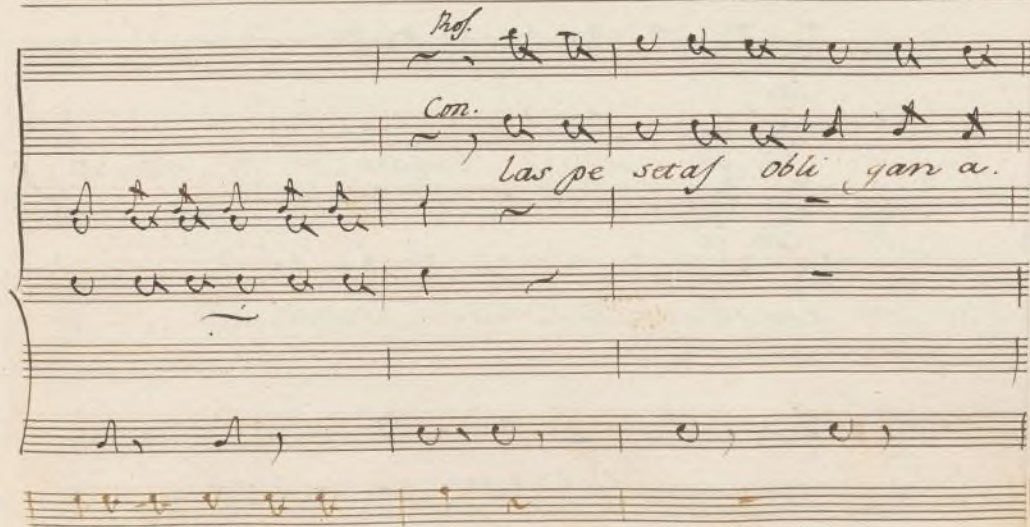 Ros.
Con.
las pe setas obli gan a.